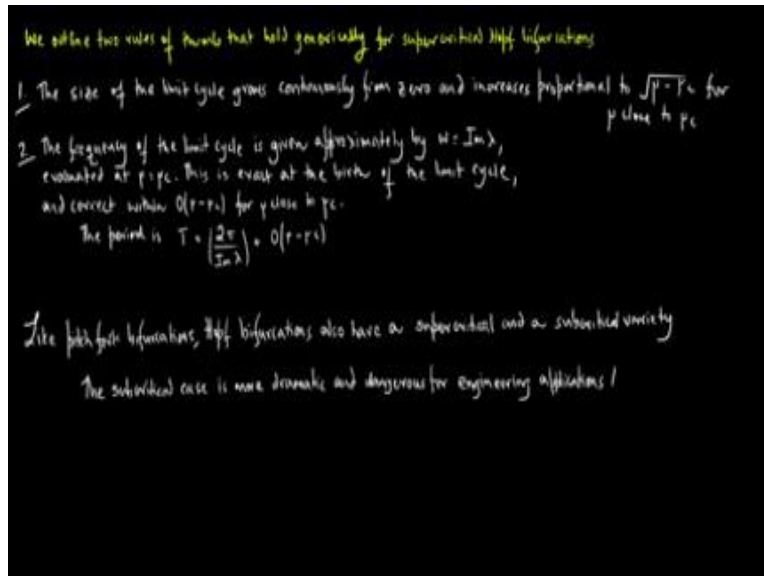 We outline two rules of thumb that hold generically for supercritical Hopf bifurcations
1. The size of the limit cycle grows continuously from zero and increases proportional to √μ - μc for
μ close to μc
2. The frequency of the limit cycle is given approximately by ω = Im λ,
evaluated at μ = μc. This is exact at the birth of the limit cycle,
and correct within O(μ-μc) for μ close to μc.
The period is T = (2π / Im λ) + O(μ-μc)
Like pitchfork bifurcations, Hopf bifurcations also have a supercritical and a subcritical variety
The subcritical case is more dramatic and dangerous for engineering applications!